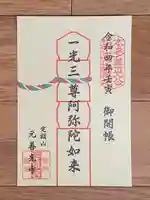 令和四年壬寅 御開帳
一光三尊阿弥陀如来
定額山
元善光寺